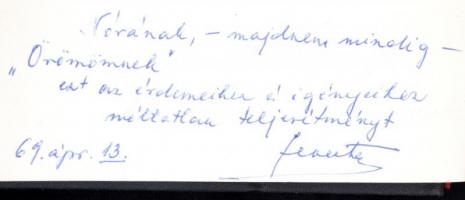 Nórának, – majdnem mindig –
„Örömömnek"
ezt az érdemeihez és igényeihez
méltatlan teljesítményt
69. ápr. 13. Levente